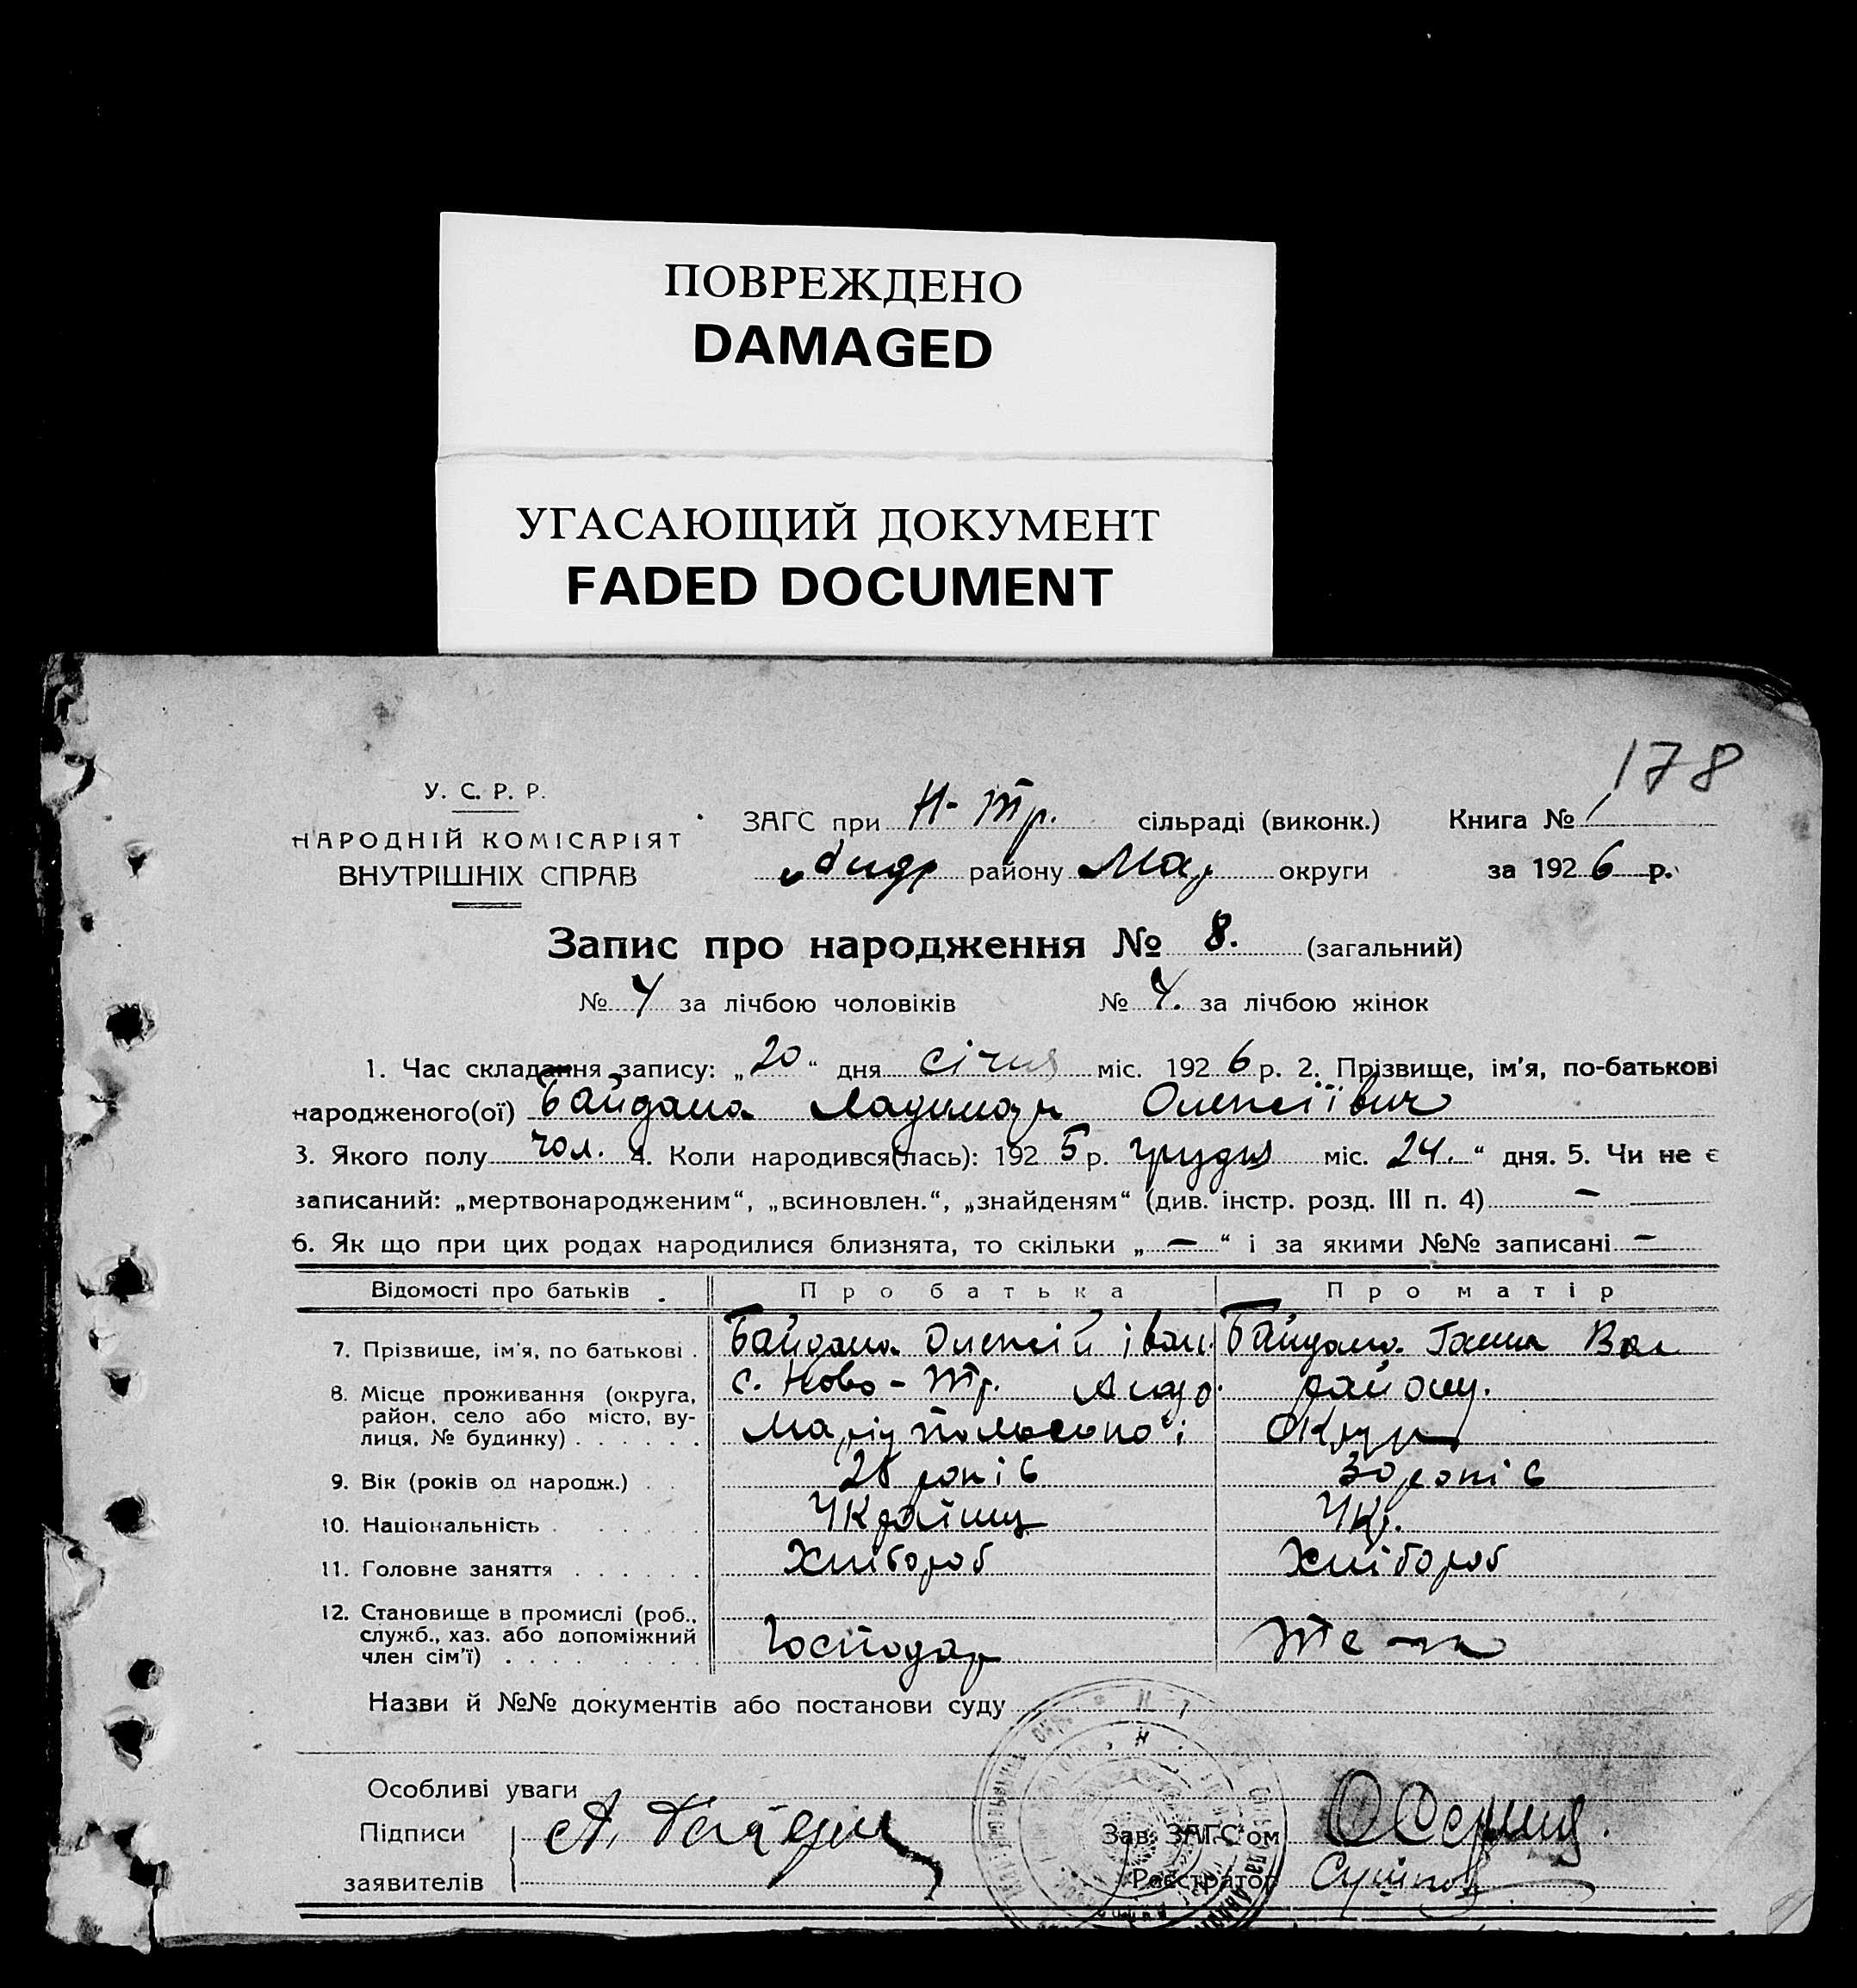 ПОВРЕЖДЕНО
DAMAGED
УГАСАЮЩИЙ ДОКУМЕНТ
FADED DOCUMENT
178
У. С. Р. Р.
НАРОДНІЙ КОМІСАРІЯТ
ВНУТРІШНІХ СПРАВ
ЗАГС при Н-Тр. сільраді (виконк.) Книга № 1
району Мар округи за 1926 р.
Запис про народження № 8. (загальний)
№ 4 за лічбою чоловіків № 4. за лічбою жінок
1. Час складання запису: „20“ дня січня міс. 1926 р. 2. Прізвище, ім'я, по-батькові
народженого(ої) Байдала Олексіївич
3. Якого полу чол. 4. Коли народився(лась): 1925 р. грудня міс. 24. “ дня. 5. Чи не є
записаний: „мертвонародженим“, „всиновлен.“, „знайденям“ (див. інстр. розд. III п. 4) –
6. Як що при цих родах народилися близнята, то скільки „ – “ і за якими №№ записані –
Відомості про батьків Про батька Про матір
7. Прізвище, ім'я, по батькові . Байдала Олексій Іван. Байдала Ганна Вас
8. Місце проживання (округа, с. Ново-Тр. Андр. району.
район, село або місто, ву-
лиця, № будинку) . . . . . . Маріупольської Округи
9. Вік (років од народж.) . . 28 років 30 років
10. Національність . . . . . Україн Укр.
11. Головне заняття . . . . . . Хлібороб Хлібороб
12. Становище в промислі (роб.,
служб., хаз. або допоміжний
член сім'ї) . . . . . . . . . Господар
Назви й №№ документів або постанови суду
Особливі уваги
Підписи А.
Зав. ЗАГС'ом
заявителів
Реєстратор